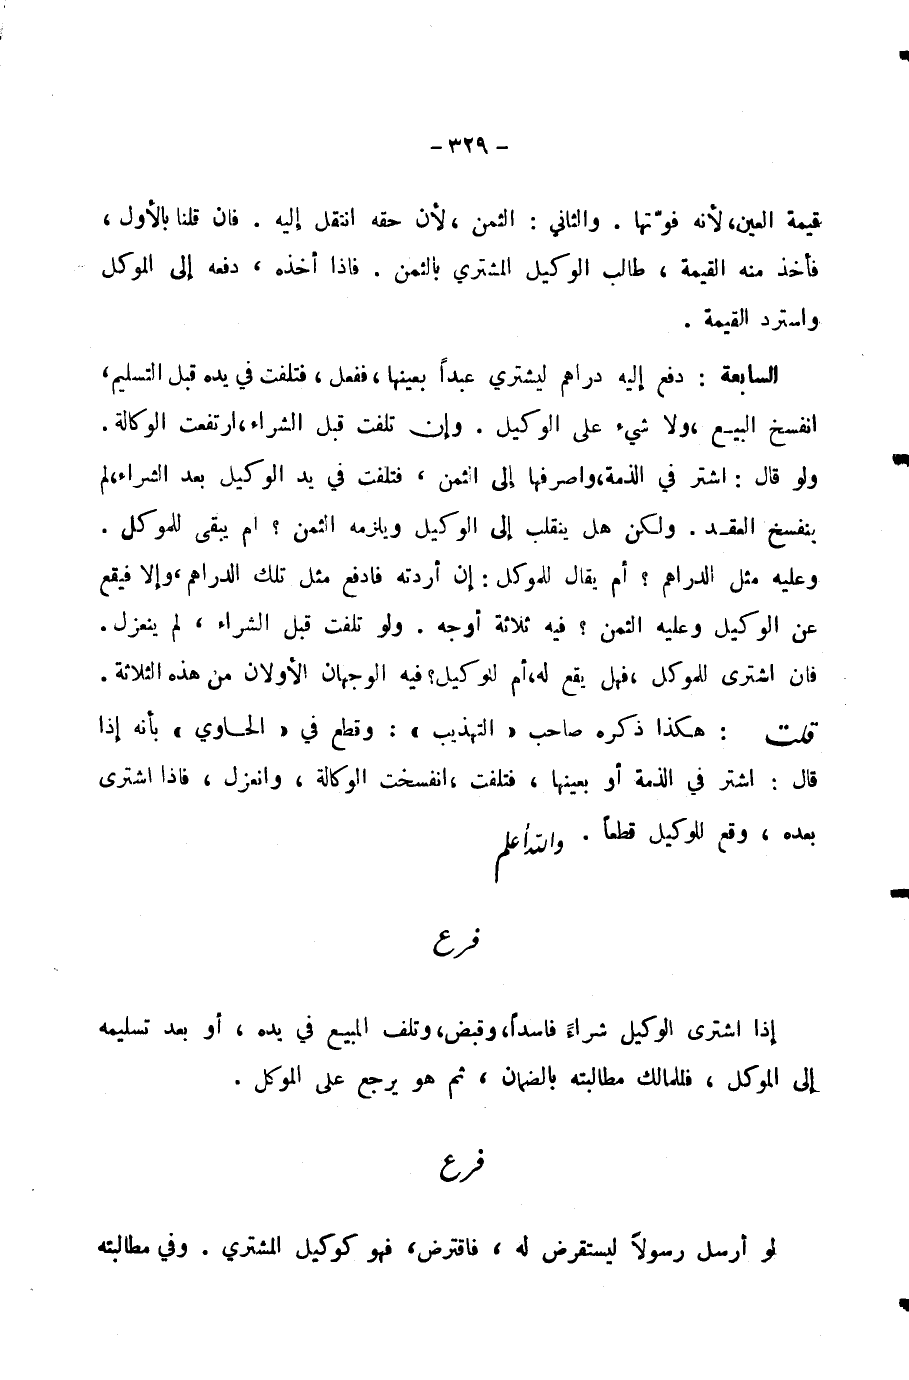 - ٣٢٩ -
قيمة العين، لأنه فوّتها . والثاني : الثمن ، لأن حقه انتقل إليه . فان قلنا بالأول ،
فأخذ منه القيمة ، طالب الوكيل المشتري بالثمن . فاذا أخذه ، دفعه إلى الموكل
واسترد القيمة .
السابعة : دفع إليه دراهم ليشتري عبداً بعينها ، ففعل ، فتلفت في يده قبل التسليم ،
انفسخ البيع ، ولا شيء على الوكيل . وإن تلفت قبل الشراء ، ارتفعت الوكالة .
ولو قال : اشتر في الذمة ، واصرفها إلى الثمن ، فتلفت في يد الوكيل بعد الشراء ، لم
ينفسخ العقد . ولكن هل ينقلب إلى الوكيل ويلزمه الثمن ؟ ام يبقى للموكل .
وعليه مثل الدراهم ؟ أم يقال للموكل : إن أردته فادفع مثل تلك الدراهم ، وإلا فيقع
عن الوكيل وعليه الثمن ؟ فيه ثلاثة أوجه . ولو تلفت قبل الشراء ، لم ينعزل .
فان اشترى للموكل ، فهل يقع له ، أم للوكيل ؟ فيه الوجهان الأولان من هذه الثلاثة .
قلت : هكذا ذكره صاحب « التهذيب » : وقطع في « الحاوي » بأنه إذا
قال : اشتر في الذمة أو بعينها ، فتلفت ، انفسخت الوكالة ، وانعزل ، فاذا اشترى
بعده ، وقع للوكيل قطعاً . والله أعلم
فرع
إذا اشترى الوكيل شراءً فاسداً، وقبض، وتلف المبيع في يده ، أو بعد تسليمه
إلى الموكل ، فللمالك مطالبته بالضمان ، ثم هو يرجع على الموكل .
فرع
لو أرسل رسولاً ليستقرض له ، فاقترض، فهو كوكيل المشتري . وفي مطالبته